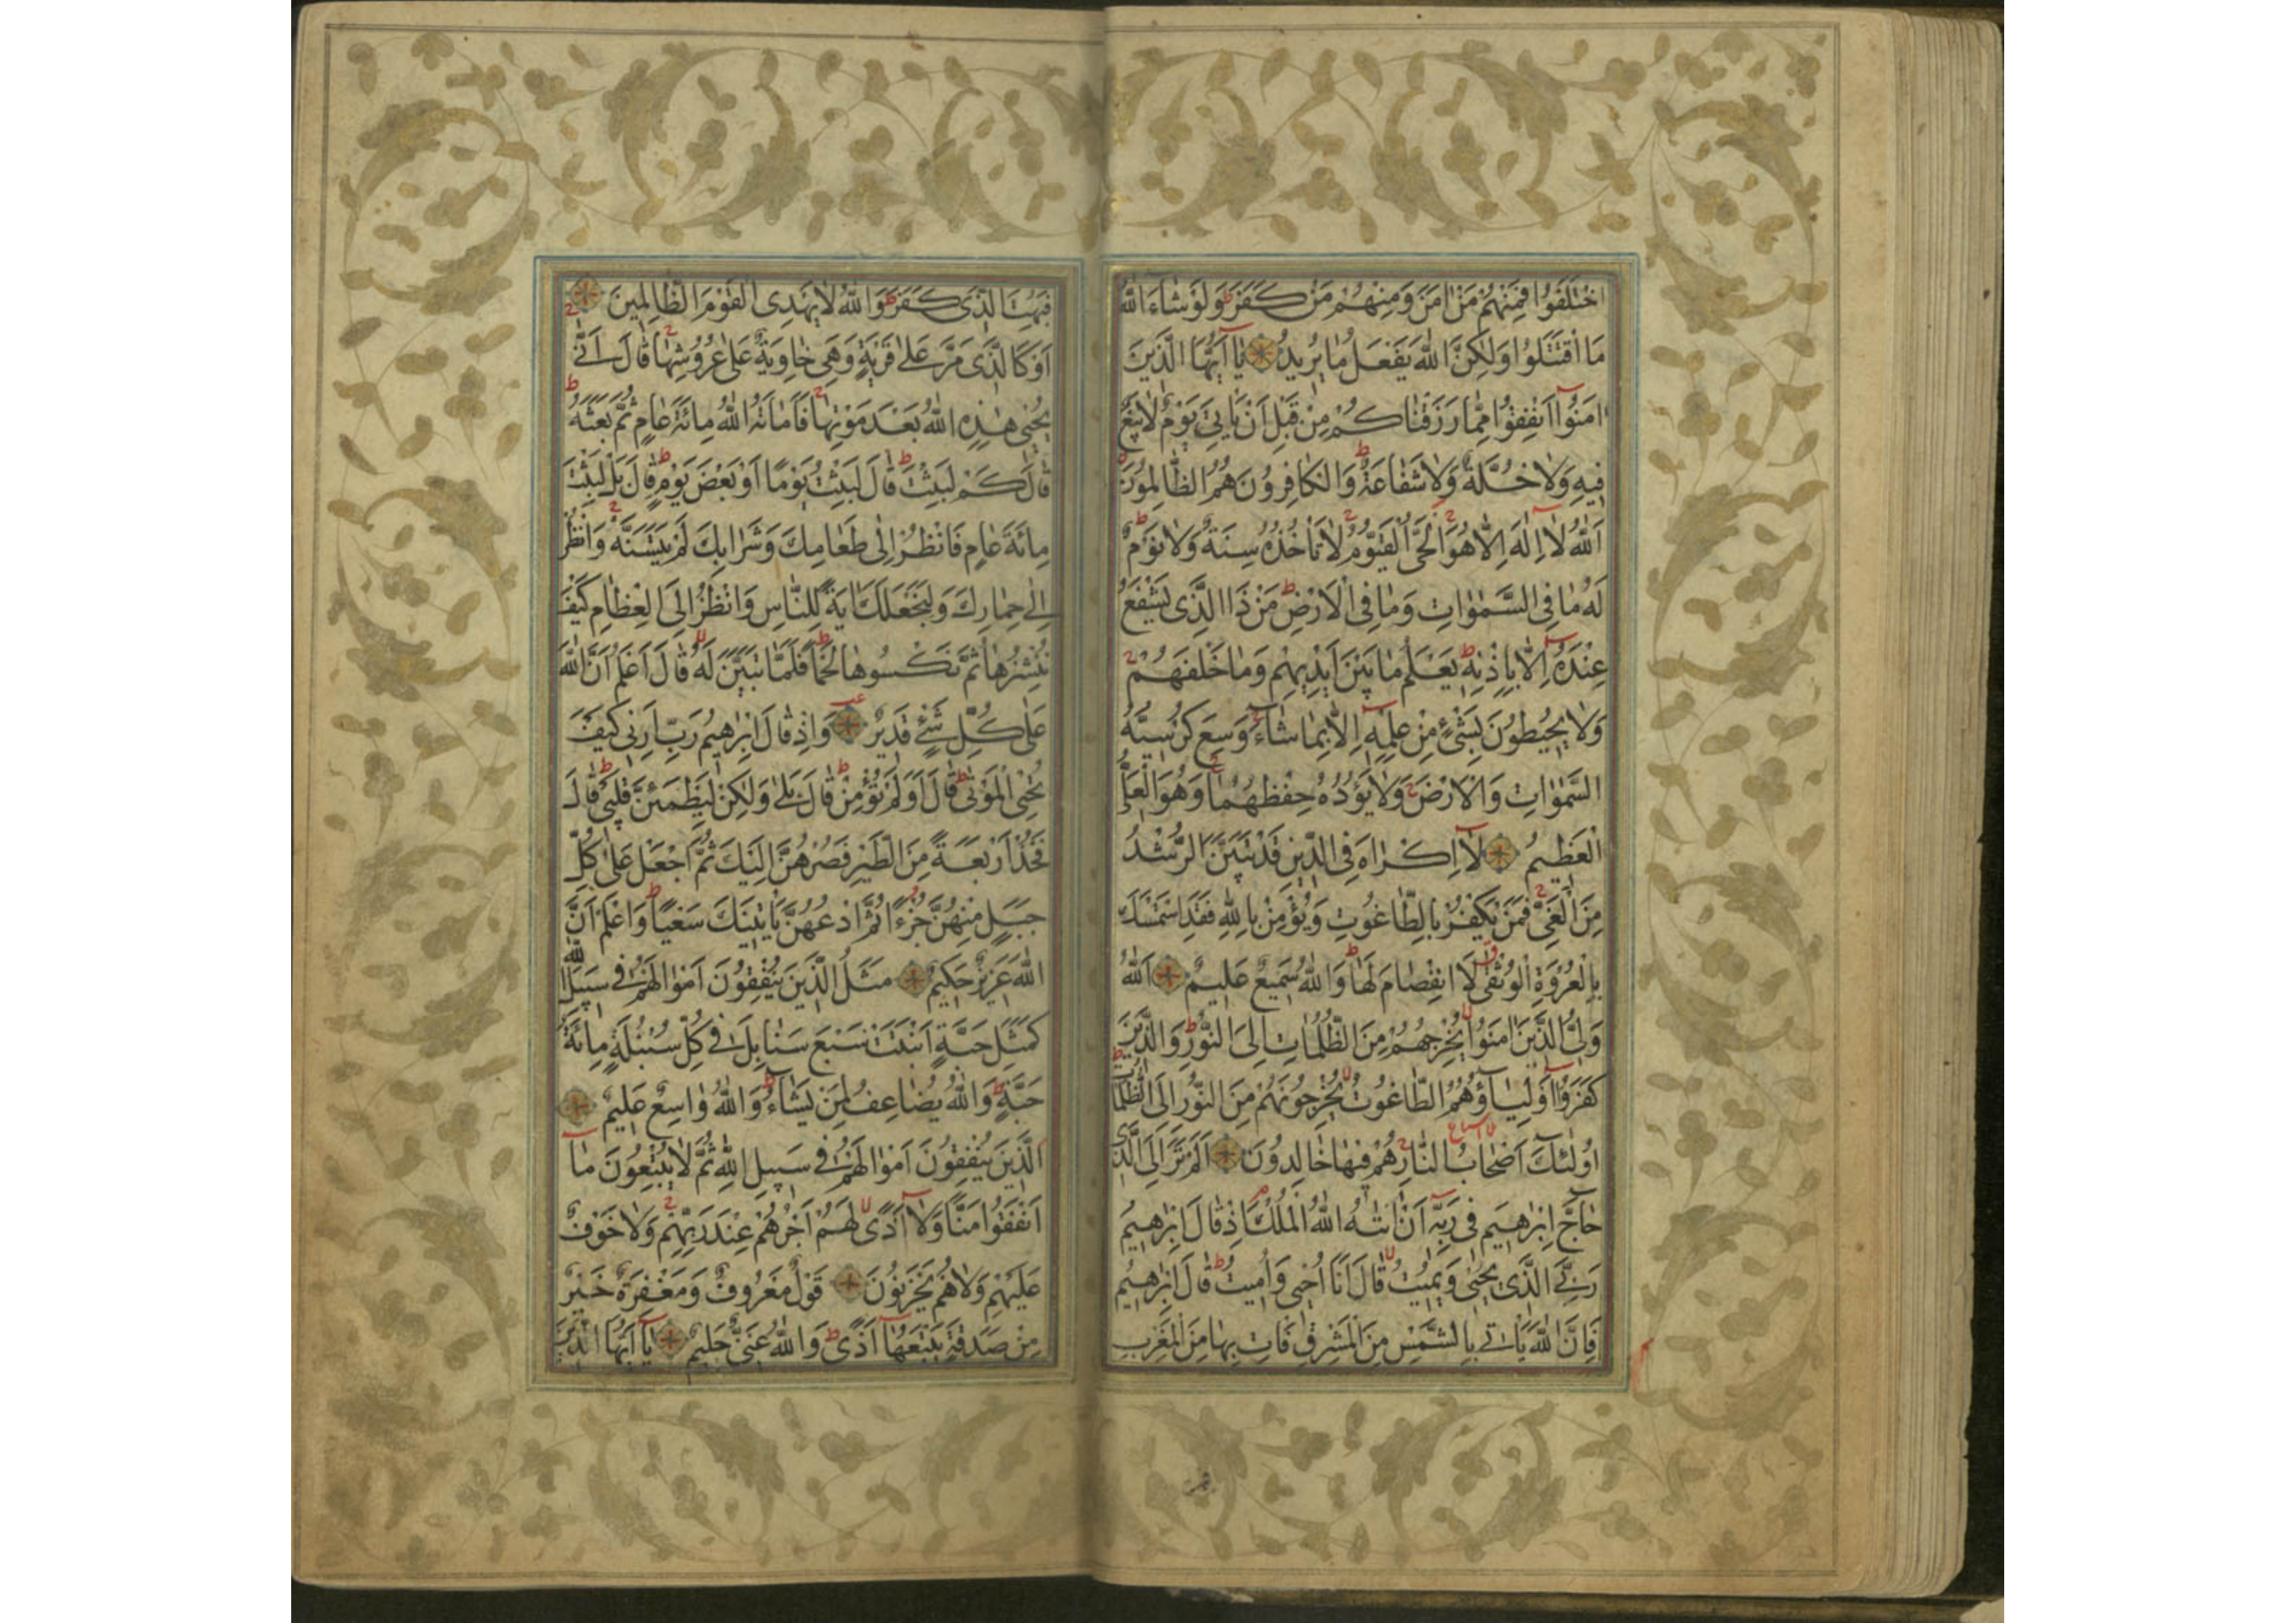 اخْتَلَفُوا فَمِنْهُمْ مَنْ اٰمَنَ وَمِنْهُمْ مَنْ كَفَرَ ط وَلَوْ شَاءَ اللّٰهُ
مَا اقْتَتَلُوا وَلٰكِنَّ اللّٰهَ يَفْعَلُ مٰا يُرِيدُ يٰٓا اَيُّهَا الَّذِينَ
اٰمَنُوٓا اَنْفِقُوا مِمّٰا رَزَقْنٰاكُمْ مِنْ قَبْلِ اَنْ يَاْتِيَ يَوْمٌ لاٰ بَيْعٌ
فِيهِ وَلاٰ خُلَّةٌ وَلاٰ شَفٰاعَةٌ ط وَالْكٰافِرُونَ هُمُ الظّٰالِمُونَ
اَللّٰهُ لآٰ اِلٰهَ اِلاّٰ هُوَ ج اَلْحَيُّ الْقَيُّومُ ج لاٰ تَاْخُذُهُ سِنَةٌ وَلاٰ نَوْمٌ ط
لَهُ مٰا فِي السَّمٰوٰاتِ وَمٰا فِي الْاَرْضِ ط مَنْ ذَا الَّذِي يَشْفَعُ
عِنْدَهُٓ اِلاّٰ بِاِذْنِهِ ط يَعْلَمُ مٰا بَيْنَ اَيْدِيهِمْ وَمٰا خَلْفَهُمْ ج
وَلاٰ يُحِيطُونَ بِشَيْءٍ مِنْ عِلْمِهِٓ اِلاّٰ بِمٰا شٰاءَ ج وَسِعَ كُرْسِيُّهُ
السَّمٰوٰاتِ وَالْاَرْضَ ج وَلاٰ يَؤُدُهُ حِفْظُهُمٰا ج وَهُوَ الْعَلِيُّ
الْعَظِيمُ لآٰ اِكْرٰاهَ فِي الدِّينِ قَدْ تَبَيَّنَ الرُّشْدُ
مِنَ الْغَيِّ ج فَمَنْ يَكْفُرْ بِالطّٰاغُوتِ وَيُؤْمِنْ بِاللّٰهِ فَقَدِ اسْتَمْسَكَ
بِالْعُرْوَةِ الْوُثْقٰى لَا انْفِصٰامَ لَهٰا ط وَاللّٰهُ سَمِيعٌ عَلِيمٌ اَللّٰهُ
وَلِيُّ الَّذِينَ اٰمَنُوا لا يُخْرِجُهُمْ مِنَ الظُّلُمٰاتِ اِلَى النُّورِ ط وَالَّذِينَ
كَفَرُوٓا اَوْلِيٰاؤُهُمُ الطّٰاغُوتُ لا يُخْرِجُونَهُمْ مِنَ النُّورِ اِلَى الظُّلُمٰاتِ ط
اُولٰئِكَ اَصْحٰابُ النّٰارِ ج هُمْ فِيهٰا خٰالِدُونَ اَلَمْ تَرَ اِلَى الَّذِي
حٰاجَّ اِبْرٰهِيمَ فِي رَبِّهِٓ اَنْ اٰتٰىهُ اللّٰهُ الْمُلْكَ م اِذْ قٰالَ اِبْرٰهِيمُ
رَبِّيَ الَّذِي يُحْيِي وَيُمِيتُ لا قٰالَ اَنَا اُحْيِي وَاُمِيتُ ط قٰالَ اِبْرٰهِيمُ
فَاِنَّ اللّٰهَ يَاْتِي بِالشَّمْسِ مِنَ الْمَشْرِقِ فَاْتِ بِهٰا مِنَ الْمَغْرِبِ
فَبُهِتَ الَّذِي كَفَرَ ط وَاللّٰهُ لاٰ يَهْدِي الْقَوْمَ الظّٰالِمِينَ
اَوْ كَالَّذِي مَرَّ عَلٰى قَرْيَةٍ وَهِيَ خٰاوِيَةٌ عَلٰى عُرُوشِهٰا ج قٰالَ اَنّٰى
يُحْيِي هٰذِهِ اللّٰهُ بَعْدَ مَوْتِهٰا ج فَاَمٰاتَهُ اللّٰهُ مِائَةَ عٰامٍ ثُمَّ بَعَثَهُ ط
قٰالَ كَمْ لَبِثْتَ ط قٰالَ لَبِثْتُ يَوْمًا اَوْ بَعْضَ يَوْمٍ ط قٰالَ بَلْ لَبِثْتَ
مِائَةَ عٰامٍ فَانْظُرْ اِلٰى طَعٰامِكَ وَشَرٰابِكَ لَمْ يَتَسَنَّهْ ج وَانْظُرْ
اِلٰى حِمٰارِكَ وَلِنَجْعَلَكَ اٰيَةً لِلنّٰاسِ وَانْظُرْ اِلَى الْعِظٰامِ كَيْفَ
نُنْشِزُهٰا ثُمَّ نَكْسُوهٰا لَحْمًا ط فَلَمّٰا تَبَيَّنَ لَهُ لا قٰالَ اَعْلَمُ اَنَّ اللّٰهَ
عَلٰى كُلِّ شَيْءٍ قَدِيرٌ وَاِذْ قٰالَ اِبْرٰهِيمُ رَبِّ اَرِنِي كَيْفَ
تُحْيِي الْمَوْتٰى ط قٰالَ اَوَلَمْ تُؤْمِنْ ط قٰالَ بَلٰى وَلٰكِنْ لِيَطْمَئِنَّ قَلْبِي ط قٰالَ
فَخُذْ اَرْبَعَةً مِنَ الطَّيْرِ فَصُرْهُنَّ اِلَيْكَ ثُمَّ اجْعَلْ عَلٰى كُلِّ
جَبَلٍ مِنْهُنَّ جُزْءًا ثُمَّ ادْعُهُنَّ يَاْتِينَكَ سَعْيًا ط وَاعْلَمْ اَنَّ
اللّٰهَ عَزِيزٌ حَكِيمٌ مَثَلُ الَّذِينَ يُنْفِقُونَ اَمْوٰالَهُمْ فِي سَبِيلِ اللّٰهِ
كَمَثَلِ حَبَّةٍ اَنْبَتَتْ سَبْعَ سَنٰابِلَ فِي كُلِّ سُنْبُلَةٍ مِائَةُ
حَبَّةٍ ط وَاللّٰهُ يُضٰاعِفُ لِمَنْ يَشٰاءُ ط وَاللّٰهُ وٰاسِعٌ عَلِيمٌ
اَلَّذِينَ يُنْفِقُونَ اَمْوٰالَهُمْ فِي سَبِيلِ اللّٰهِ ثُمَّ لاٰ يُتْبِعُونَ مٰٓا
اَنْفَقُوا مَنًّا وَلآٰ اَذًى لا لَهُمْ اَجْرُهُمْ عِنْدَ رَبِّهِمْ ج وَلاٰ خَوْفٌ
عَلَيْهِمْ وَلاٰ هُمْ يَحْزَنُونَ قَوْلٌ مَعْرُوفٌ وَمَغْفِرَةٌ خَيْرٌ
مِنْ صَدَقَةٍ يَتْبَعُهٰٓا اَذًى ط وَاللّٰهُ غَنِيٌّ حَلِيمٌ يٰٓا اَيُّهَا الَّذِينَ